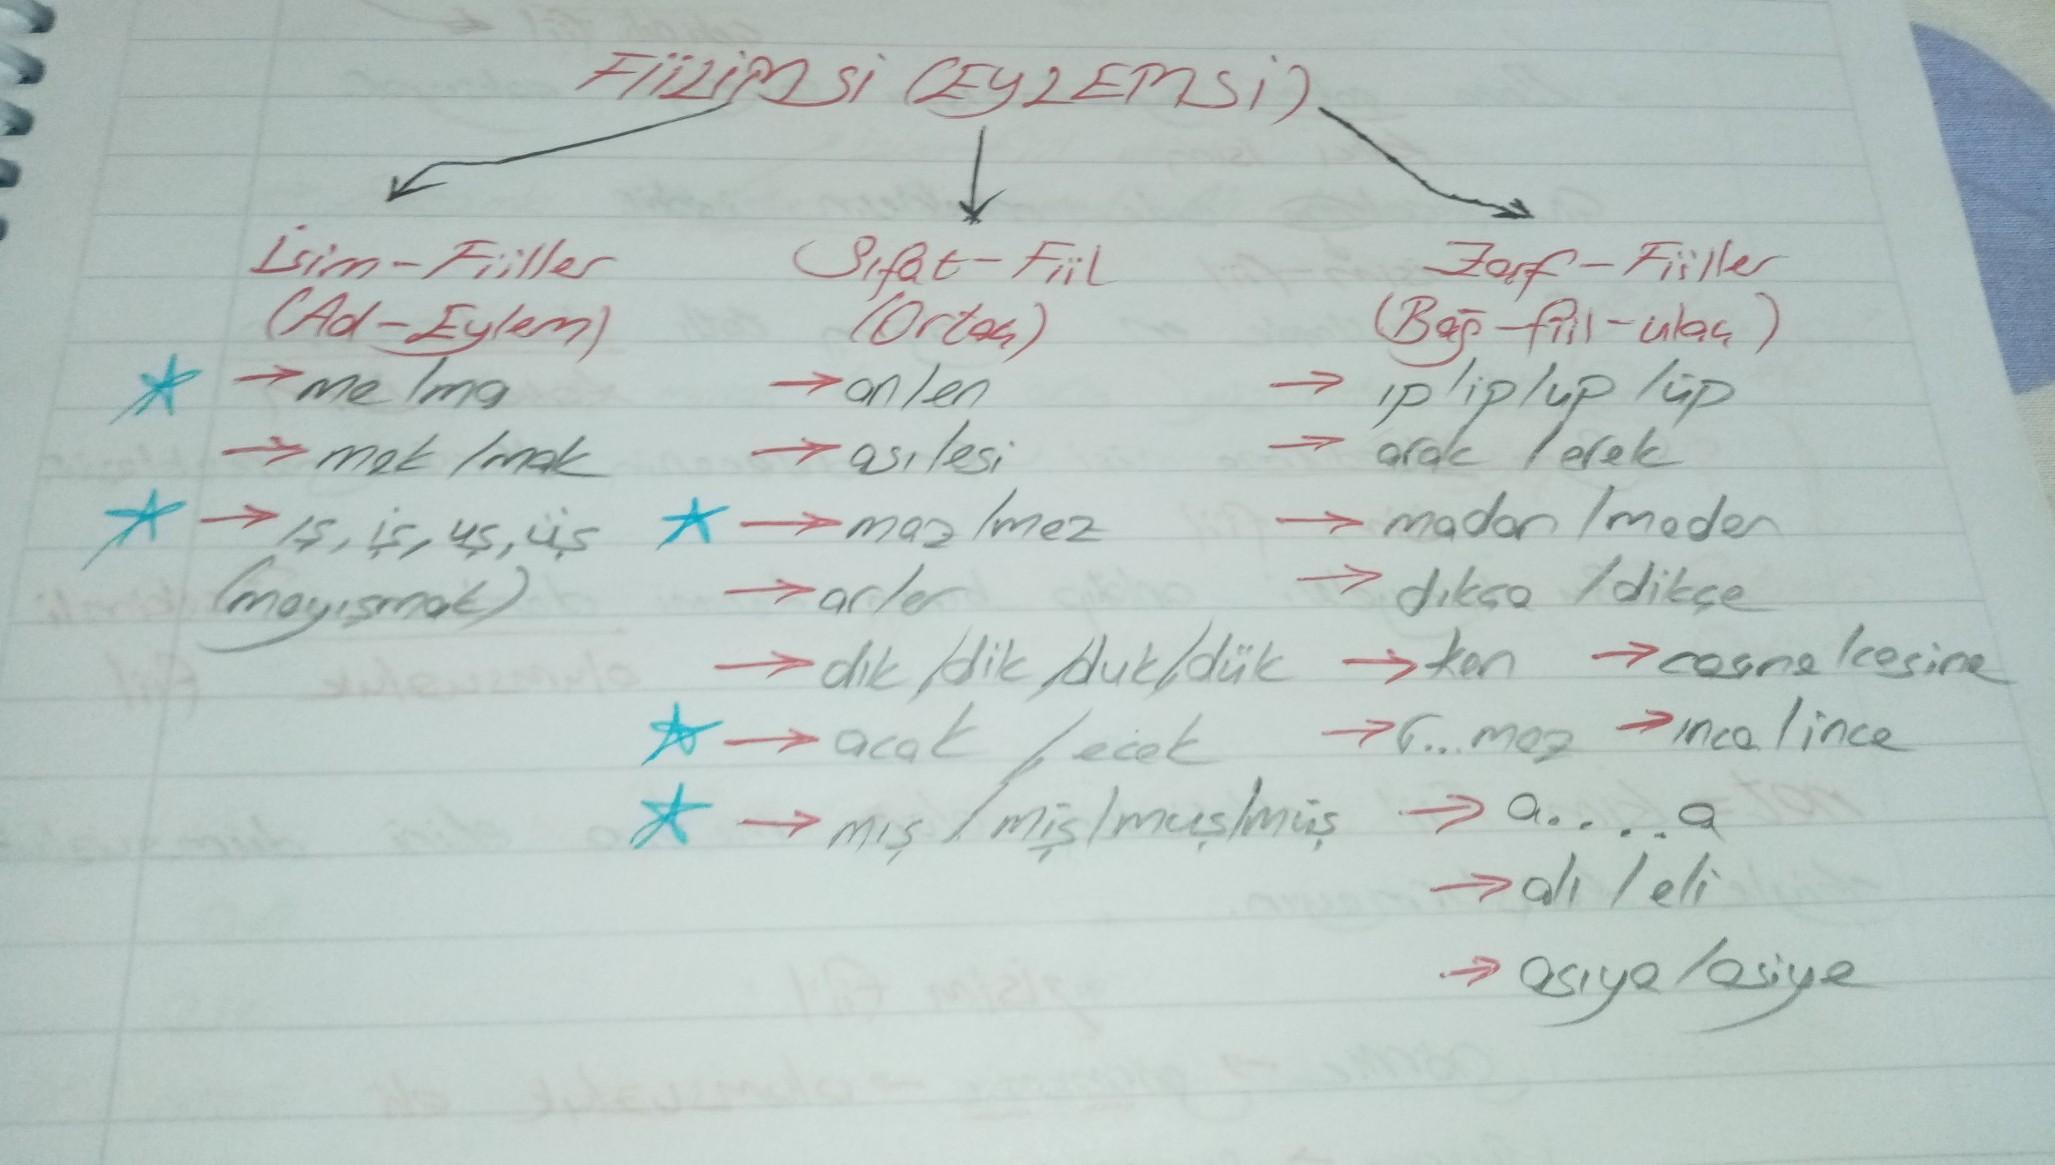 FİİLİMSİ (EYLEMSİ)
İsim-Fiiller
(Ad-Eylem)
→ me/ma
→ mek/mak
→ ış, iş, uş, üş
(mayışmak)
Sıfat-Fiil
(Ortaç)
→ an/en
→ ası/esi
→ maz/mez
→ ar/er
→ dık/dik/duk/dük
→ acak/ecek
→ mış/miş/muş/müş
Zarf-Fiiller
(Bağ-fiil-ulaç)
→ ıp/ip/up/üp
→ arak/erek
→ madan/meden
→ dıkça/dikçe
→ ken → casına/cesine
→ r...maz → ınca/ince
→ a....a
→ alı/eli
→ asıya/asiye